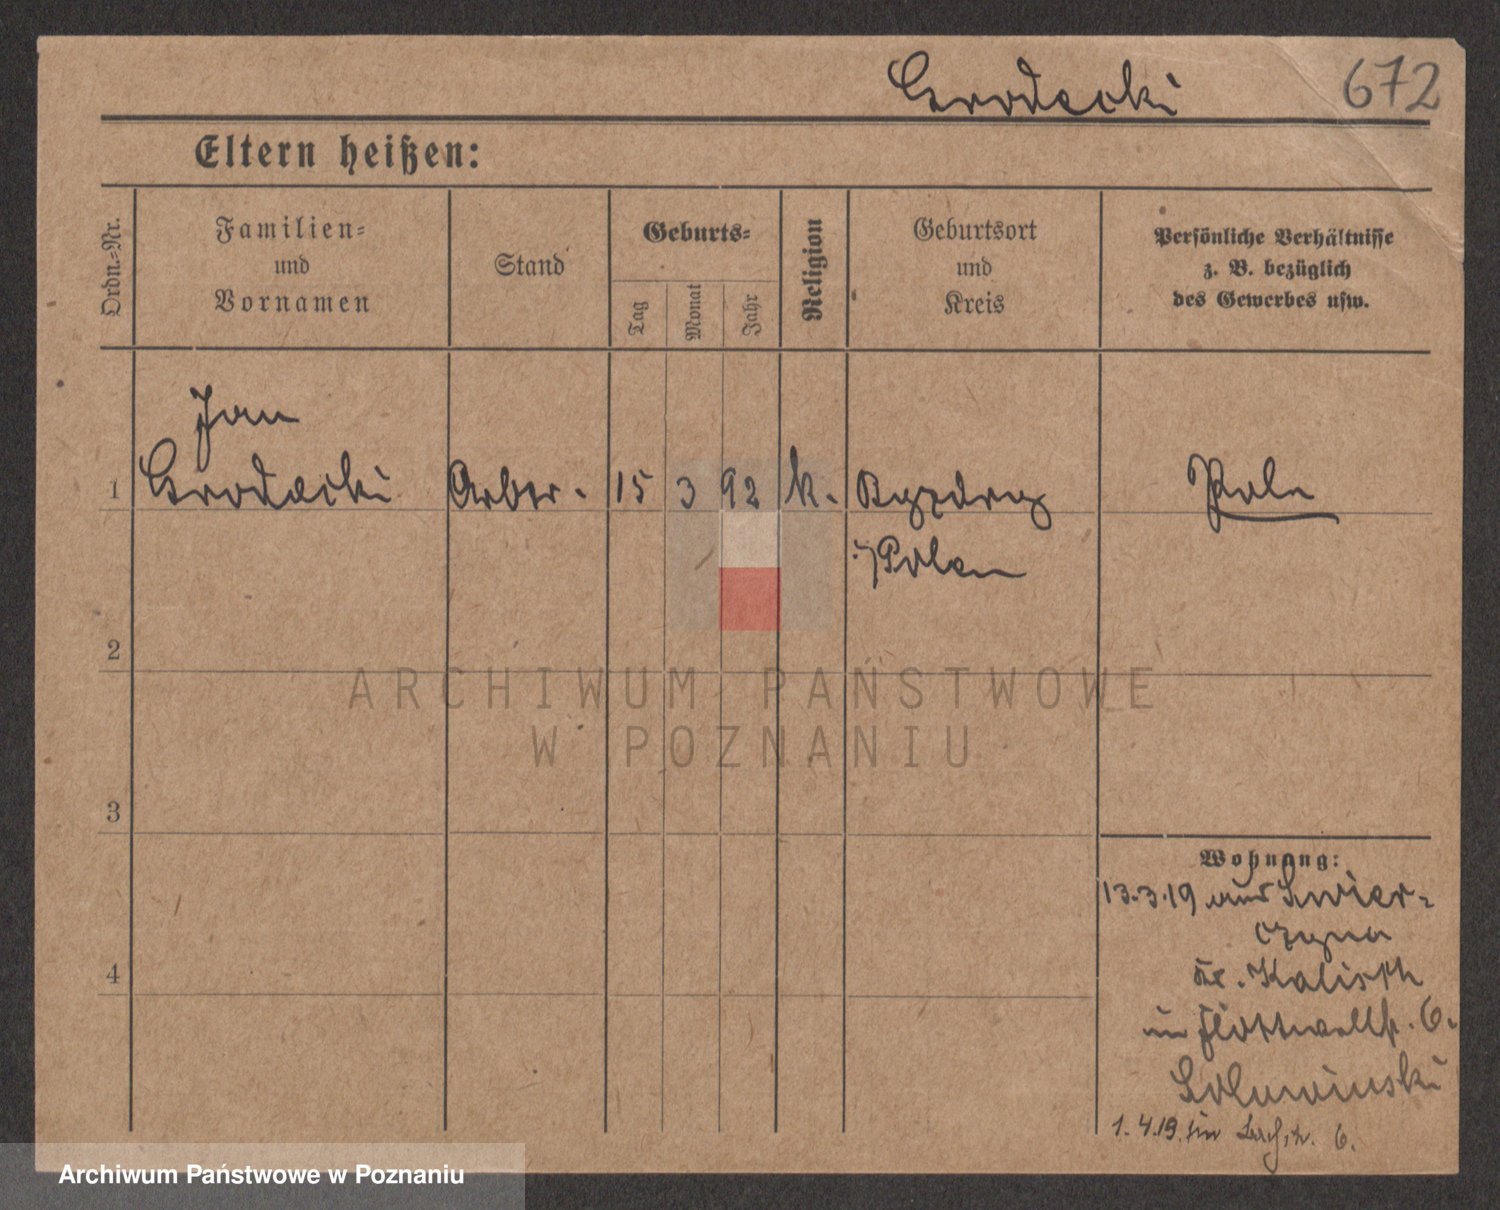 Grodecki 672
Eltern heißen:
Ordn.-Nr.
Familien-
und
Vornamen
Stand
Geburts-
Tag
Monat
Jahr
Religion
Geburtsort
und
Kreis
Persönliche Verhältnisse
z. B. bezüglich
des Gewerbes usw.
Jan
1 Grodecki Arber. 15 3 92 k. Pole
i/Polen
2
3
4
Wohnung:
13.3.19 aus
Kr. Kalisch
in Flottwellstr. 6.
1.4.19. 6.
ARCHIWUM PAŃSTWOWE
W POZNANIU
Archiwum Państwowe w Poznaniu